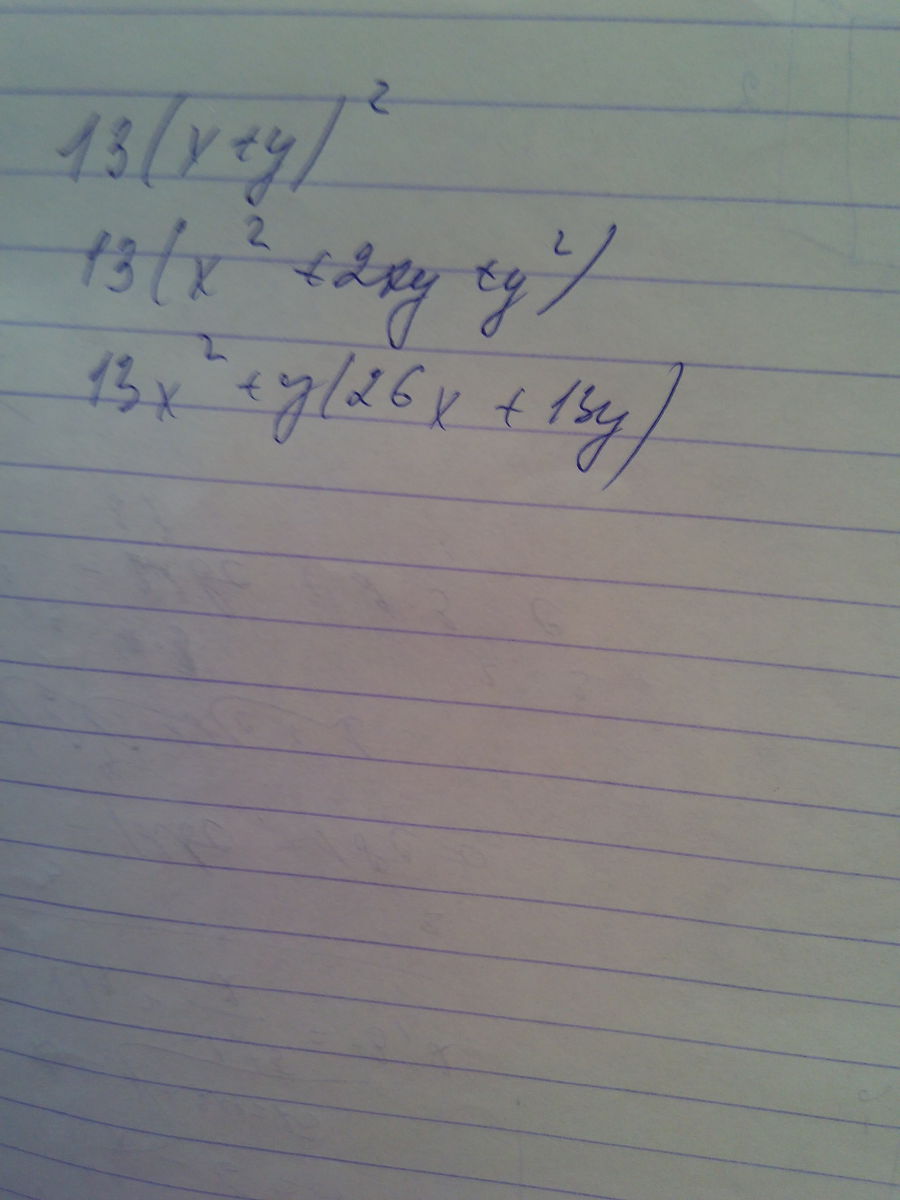 13(x+y)²
13(x² +2xy +y²)
13x² +y(26x + 13y)